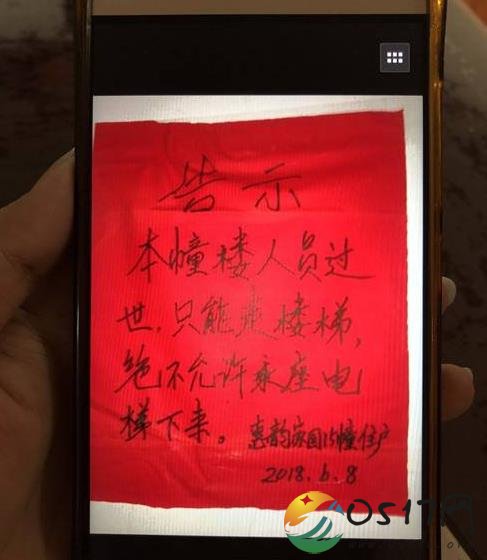 告示
本幢楼人员过
世，只能走楼梯，
绝不允许乘座电
梯下来。惠韵家园15幢住户
2018.6.8
OS17网